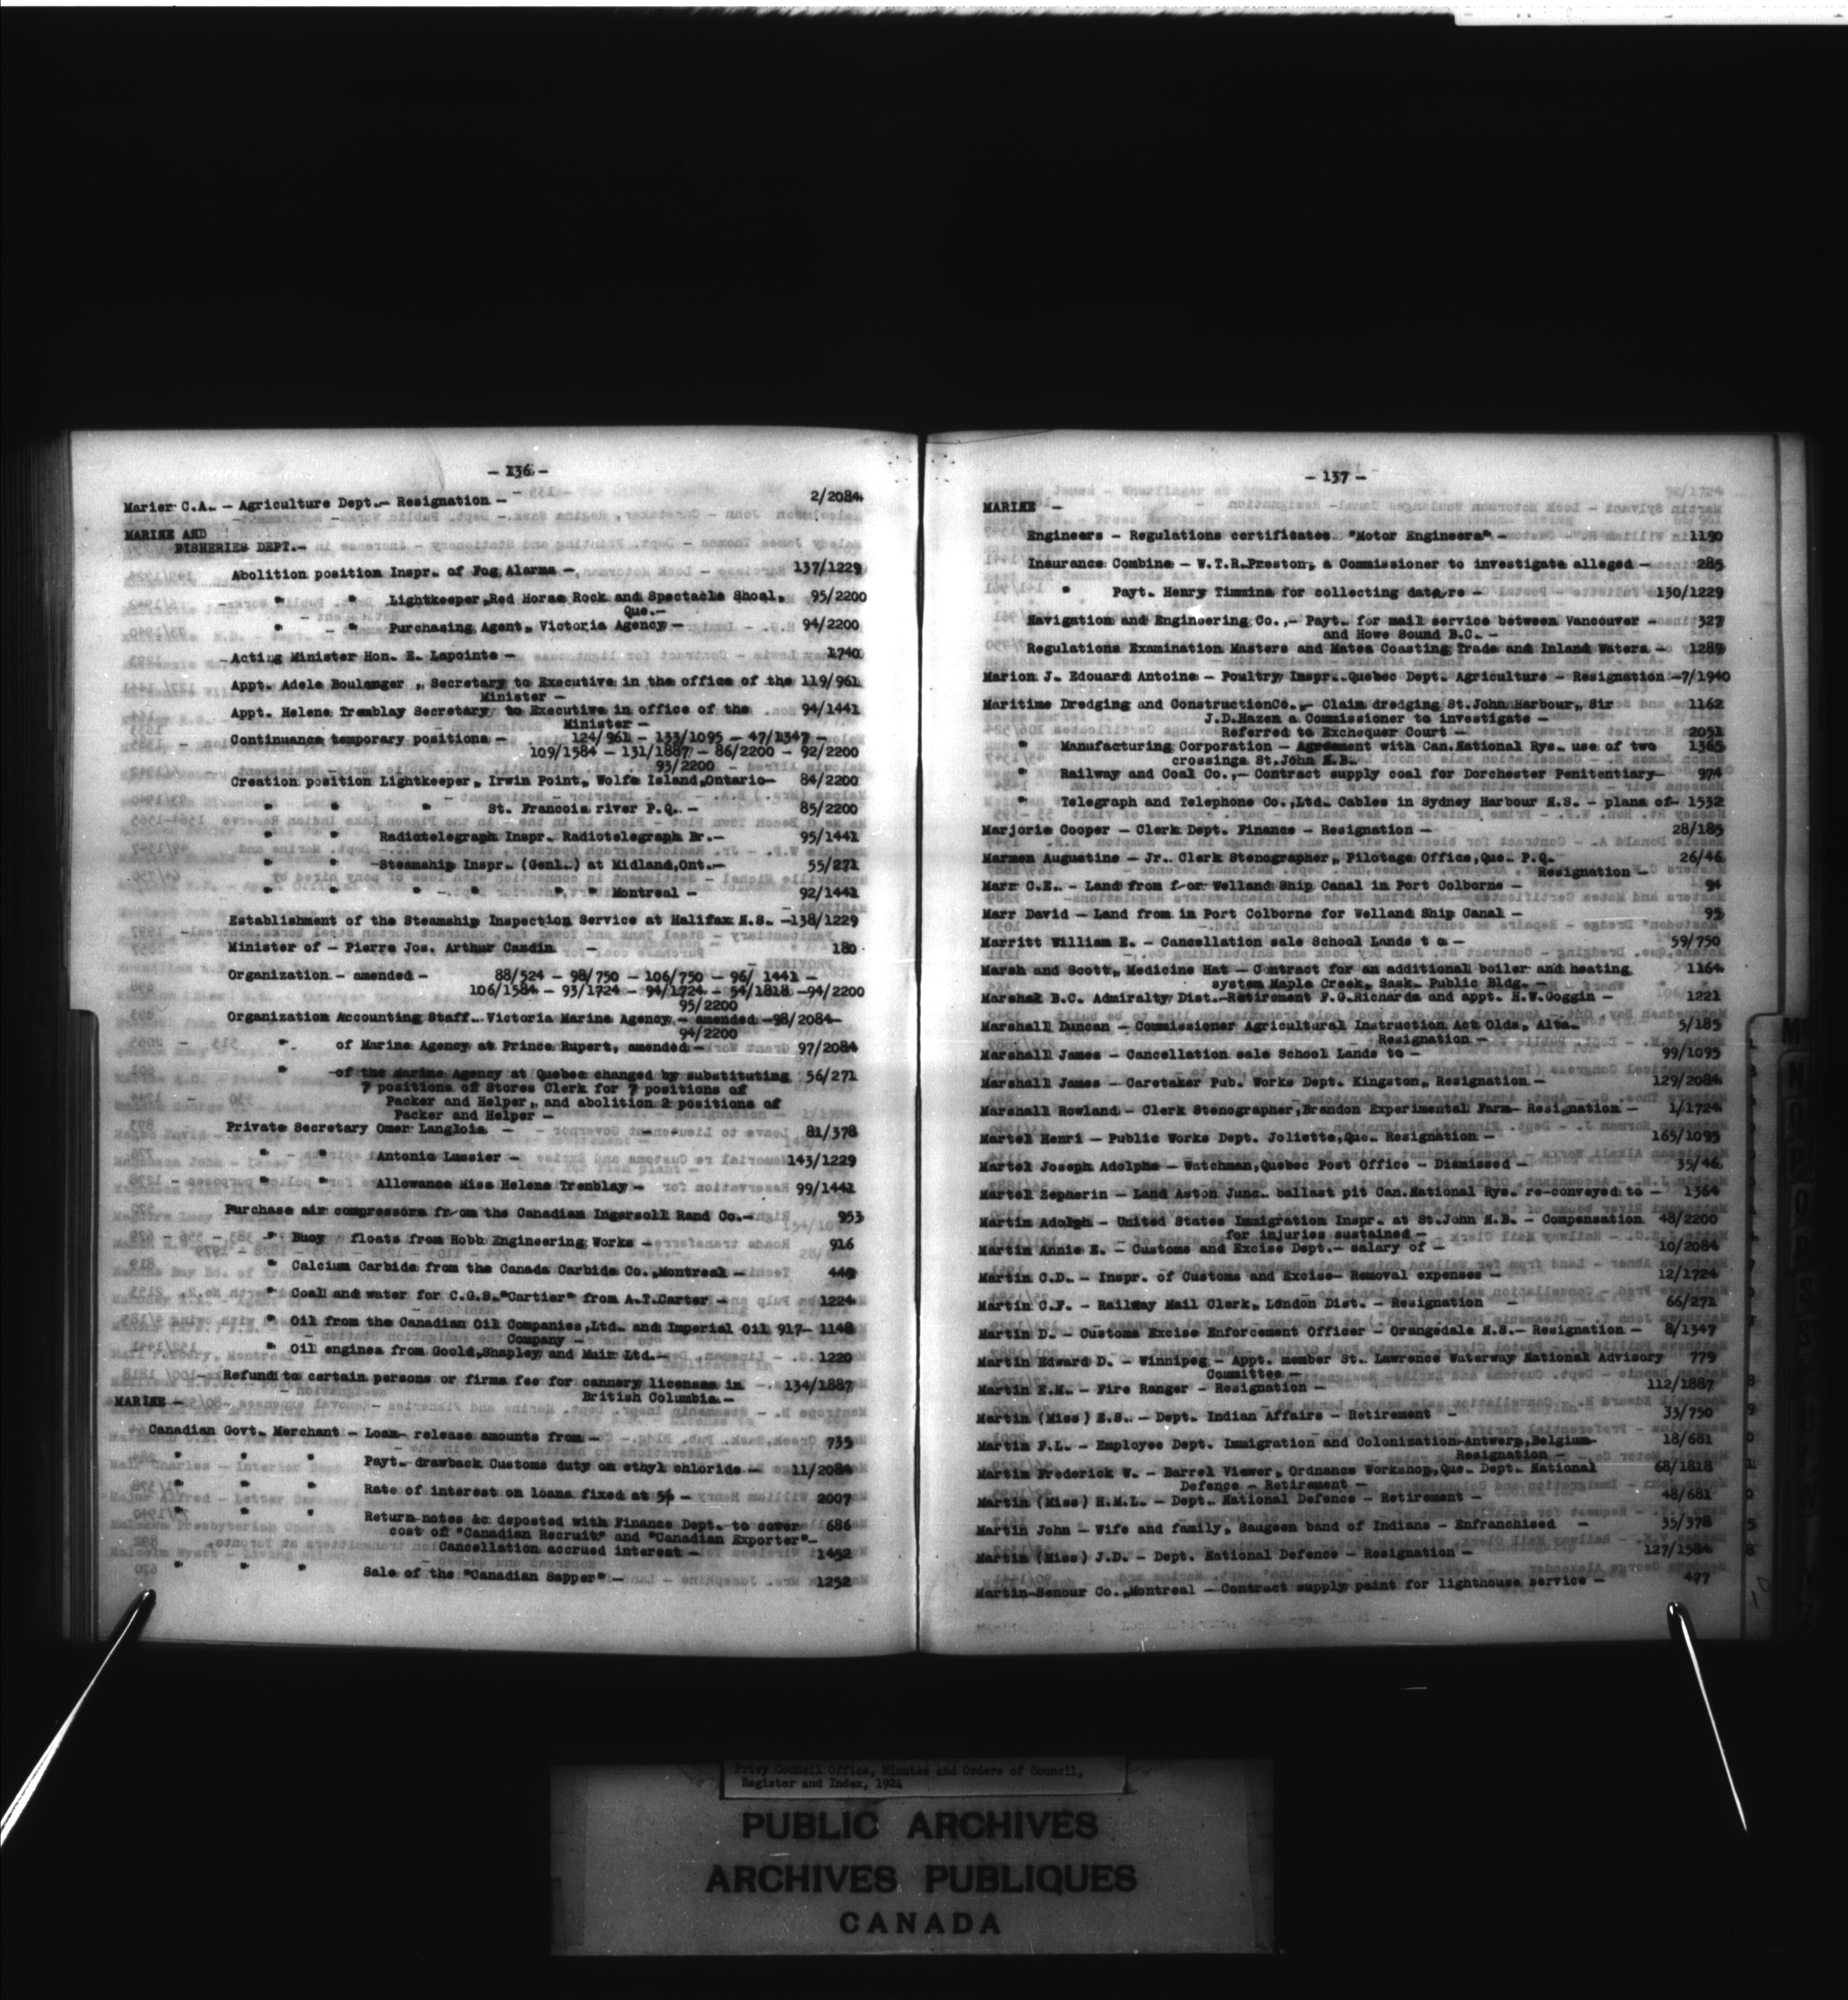 - 136 -
Marier C.A. - Agriculture Dept.- Resignation - 2/2084
MARINE AND
FISHERIES DEPT.-
Abolition position Inspr. of Fog Alarms - 137/1229
" " Lightkeeper, Red Horse Rock and Spectacle Shoal, 95/2200
Que.-
" - " Purchasing Agent, Victoria Agency - 94/2200
Acting Minister Hon. E. Lapointe - 1740
Appt. Adele Boulanger , Secretary to Executive in the office of the 119/961
Minister -
Appt. Helene Tremblay Secretary to Executive in office of the 94/1441
Minister -
Continuance temporary positions - 124/961 - 133/1095 - 47/1347 -
109/1584 - 131/1887 - 86/2200 - 92/2200
93/2200
Creation position Lightkeeper, Irwin Point, Wolfe Island, Ontario- 84/2200
" " " St. Francois river P.Q. - 85/2200
" " Radiotelegraph Inspr. Radiotelegraph Br.- 95/1441
" " -Steamship Inspr. (Genl.) at Midland, Ont.- 55/271
" " " " " " Montreal - 92/1441
Establishment of the Steamship Inspection Service at Halifax N.S. -138/1229
Minister of - Pierre Jos. Arthur Cardin - 180
Organization - amended - 88/524 - 98/750 - 106/750 - 96/ 1441 -
106/1584 - 93/1724 - 94/1724 - 54/1818 -94/2200
95/2200
Organization Accounting Staff. Victoria Marine Agency - amended -98/2084-
94/2200
" of Marine Agency at Prince Rupert, amended - 97/2084
" -of the Marine Agency at Quebec changed by substituting 56/271
7 positions of Stores Clerk for 7 positions of
Packer and Helper, and abolition 2 positions of
Packer and Helper -
Private Secretary Omer Langlois - 81/378
" " Antonio Lussier - 143/1229
" " Allowance Miss Helene Trenblay - 99/1441
Purchase air compressors from the Canadian Ingersoll Rand Co.- 953
" Buoy floats from Robb Engineering Works - 916
" Calcium Carbide from the Canada Carbide Co., Montreal - 449
" Coal and water for C.G.S."Cartier" from A.T.Carter - 1224
" Oil from the Canadian Oil Companies, Ltd. and Imperial Oil 917- 1148
Company -
" Oil engines from Goold, Shapley and Muir Ltd.- 1220
Refund to certain persons or firms fee for cannery licenses in - 134/1887
British Columbia -
MARINE -
Canadian Govt. Merchant - Loan- release amounts from - 735
" " " Payt. drawback Customs duty on ethyl chloride - 11/2084
" " " Rate of interest on loans fixed at 5% - 2007
" " " Return notes &c deposited with Finance Dept. to cover 686
cost of "Canadian Recruit" and "Canadian Exporter"-
Cancellation accrued interest - 1452
" " " Sale of the "Canadian Sapper" - 1252
- 137 -
MARINE -
Engineers - Regulations certificates "Motor Engineers" - 1190
Insurance Combine - W.T.R.Preston, a Commissioner to investigate alleged - 285
" Payt. Henry Timmins for collecting data re - 130/1229
Navigation and Engineering Co.,- Payt. for mail service between Vancouver - 327
and Howe Sound B.C. -
Regulations Examination Masters and Mates Coasting Trade and Inland Waters - 1289
Marion J. Edouard Antoine - Poultry Inspr. Quebec Dept. Agriculture - Resignation -7/1940
Maritime Dredging and ConstructionCo.,- Claim dredging St.John Harbour, Sir 1162
J.D.Hazen a Commissioner to investigate -
Referred to Exchequer Court - 2051
" Manufacturing Corporation - Agreement with Can.National Rys. use of two 1365
crossings St.John N.B.
" Railway and Coal Co.,- Contract supply coal for Dorchester Penitentiary- 974
" Telegraph and Telephone Co.,Ltd. Cables in Sydney Harbour N.S. - plans of- 1532
Marjorie Cooper - Clerk Dept. Finance - Resignation - 28/185
Marmen Augustine - Jr. Clerk Stenographer, Pilotage Office, Que. P.Q. 26/46
Resignation -
Marr C.E. - Land from for Welland Ship Canal in Port Colborne - 94
Marr David - Land from in Port Colborne for Welland Ship Canal - 95
Marritt William E. - Cancellation sale School Lands t o - 59/750
Marsh and Scott, Medicine Hat - Contract for an additional boiler and heating 1164
system Maple Creek, Sask. Public Bldg. -
Marshal B.C. Admiralty Dist.-Retirement F.G.Richards and appt. H.W.Goggin - 1221
Marshall Duncan - Commissioner Agricultural Instruction Act Olds, Alta. 5/185
Resignation -
Marshall James - Cancellation sale School Lands to - 99/1095
Marshall James - Caretaker Pub. Works Dept. Kingston, Resignation - 129/2084
Marshall Rowland - Clerk Stenographer, Brandon Experimental Farm- Resignation - 1/1724
Martel Henri - Public Works Dept. Joliette, Que. Resignation - 165/1095
Martel Joseph Adolphe - Watchman, Quebec Post Office - Dismissed - 35/46
Martel Zepherin - Land Aston Junc. ballast pit Can.National Rys. re-conveyed to - 1364
Martin Adolph - United States Immigration Inspr. at St.John N.B. - Compensation 48/2200
for injuries sustained -
Martin Annie E. - Customs and Excise Dept.- salary of - 10/2084
Martin C.D. - Inspr. of Customs and Excise- Removal expenses - 12/1724
Martin C.F. - Railway Mail Clerk, London Dist. - Resignation - 66/271
Martin D. - Customs Excise Enforcement Officer - Orangedale N.S.- Resignation - 8/1347
Martin Edward D. - Winnipeg - Appt. member St. Lawrence Waterway National Advisory 779
Committee -
Martin E.M. - Fire Ranger - Resignation - 112/1887
Martin (Miss) E.S. - Dept. Indian Affairs - Retirement - 33/750
Martin F.L. - Employee Dept. Immigration and Colonization-Antwerp, Belgium- 18/681
Resignation -
Martin Frederick W. - Barrel Viewer, Ordnance Workshop, Que. Dept. National 68/1818
Defence - Retirement -
Martin (Miss) H.M.L. - Dept. National Defence - Retirement - 48/681
Martin John - Wife and family, Saugeen band of Indians - Enfranchised - 35/378
Martin (Miss) J.D. - Dept. National Defence - Resignation - 127/1584
Martin-Senour Co., Montreal - Contract supply paint for lighthouse service - 477
Privy Council Office, Minutes and Orders of Council,
Register and Index, 1924
PUBLIC ARCHIVES
ARCHIVES PUBLIQUES
CANADA